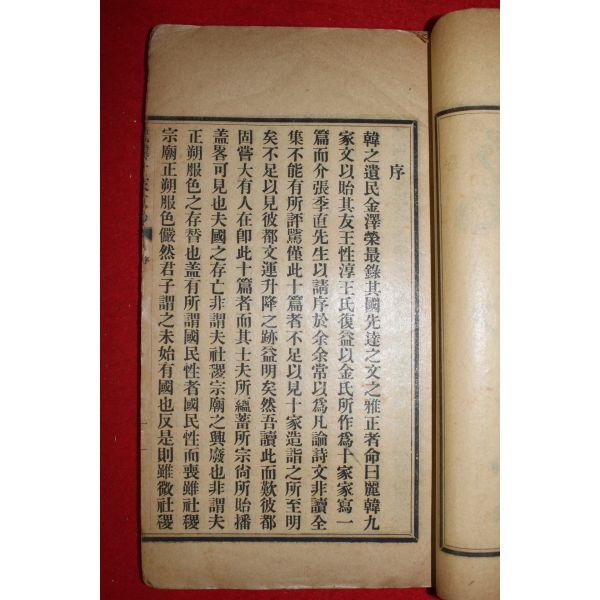 序
韓之遺民金澤榮最錄其國先達之文之雅正者命曰麗韓九
家文以貽其友王性淳王氏復益以金氏所作爲十家家寫一
篇而介張季直先生以請序於余余常以爲凡論詩文非讀全
集不能有所評騭僅此十篇者不足以見十家造詣之所至明
矣不足以見彼都文運升降之跡益明矣然吾讀此而歎彼都
固嘗大有人在卽此十篇者而其士夫所縕蓄所宗尙所貽播
盖畧可見也夫國之存亡非謂夫社稷宗廟之興廢也非謂夫
正朔服色之存替也盖有所謂國民性者國民性而喪雖社稷
宗廟正朔服色儼然君子謂之未始有國也反是則雖微社稷